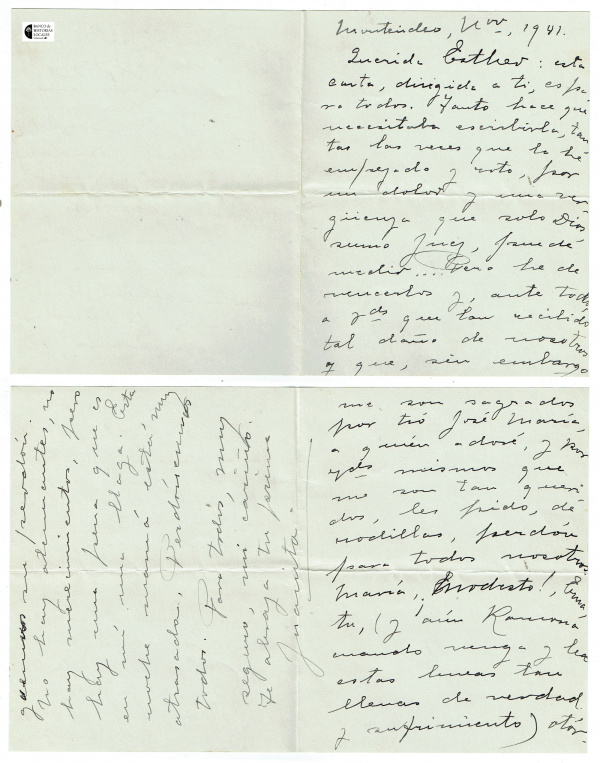 BANCO de
HISTORIAS
LOCALES
Montevideo, Nov., 1941.
Querida Esther: esta
carta, dirigida a ti, es pa
ra todos. Tanto hace que
necesitaba escribirla, tan
tas las veces que la hé
empezado y roto, por
un dolor y una ver
güenza que solo Dios
sumo Juez, puede
medir.... Pero he de
vencerlos y, ante todo
a Vds que han recibido
tal daño de nosotros
y que, sin embargo
me son sagrados
por tió José María,
a quién adoré, y por
Vds mismos que
me son tan queri
dos, les pido, de
rodillas, perdón
para todos nosotros.
María, Modesto!, Ema
tu, (y aún Ramona
cuando venga y lea
estas lineas tan
llenas de verdad
y sufrimiento) otór-
guennos su perdón.
No hay atenuantes, no
hay merecimientos, pero
hay una pena que es
en mí una llaga. Esta
noche mamá está muy
atrasada. Perdónennos
todos. Para todos, muy
seguro, mi cariño.
Te abraza tu prima
Juanita.